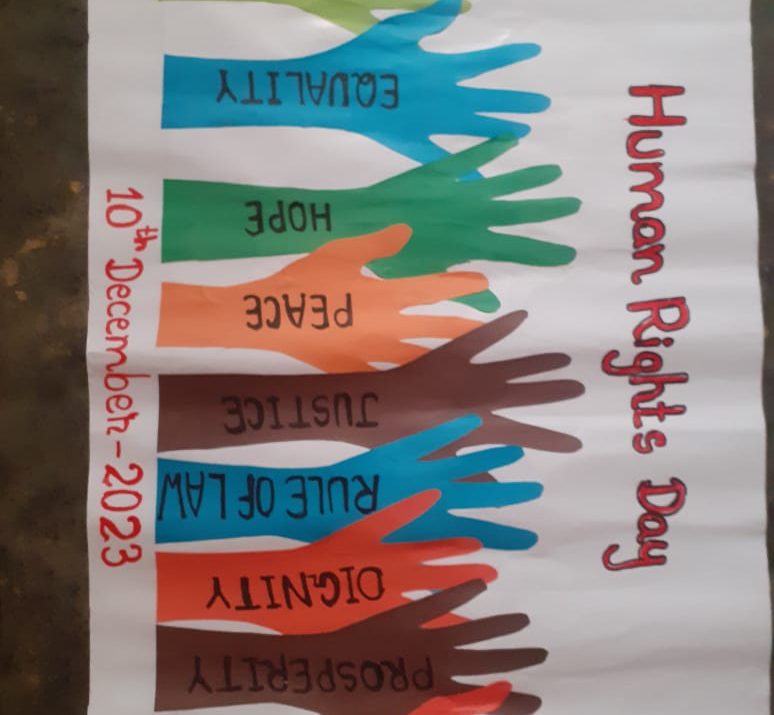 Human Rights Day
EQUALITY
HOPE
PEACE
JUSTICE
RULE OF LAW
DIGNITY
PROSPERITY
10th December-2023